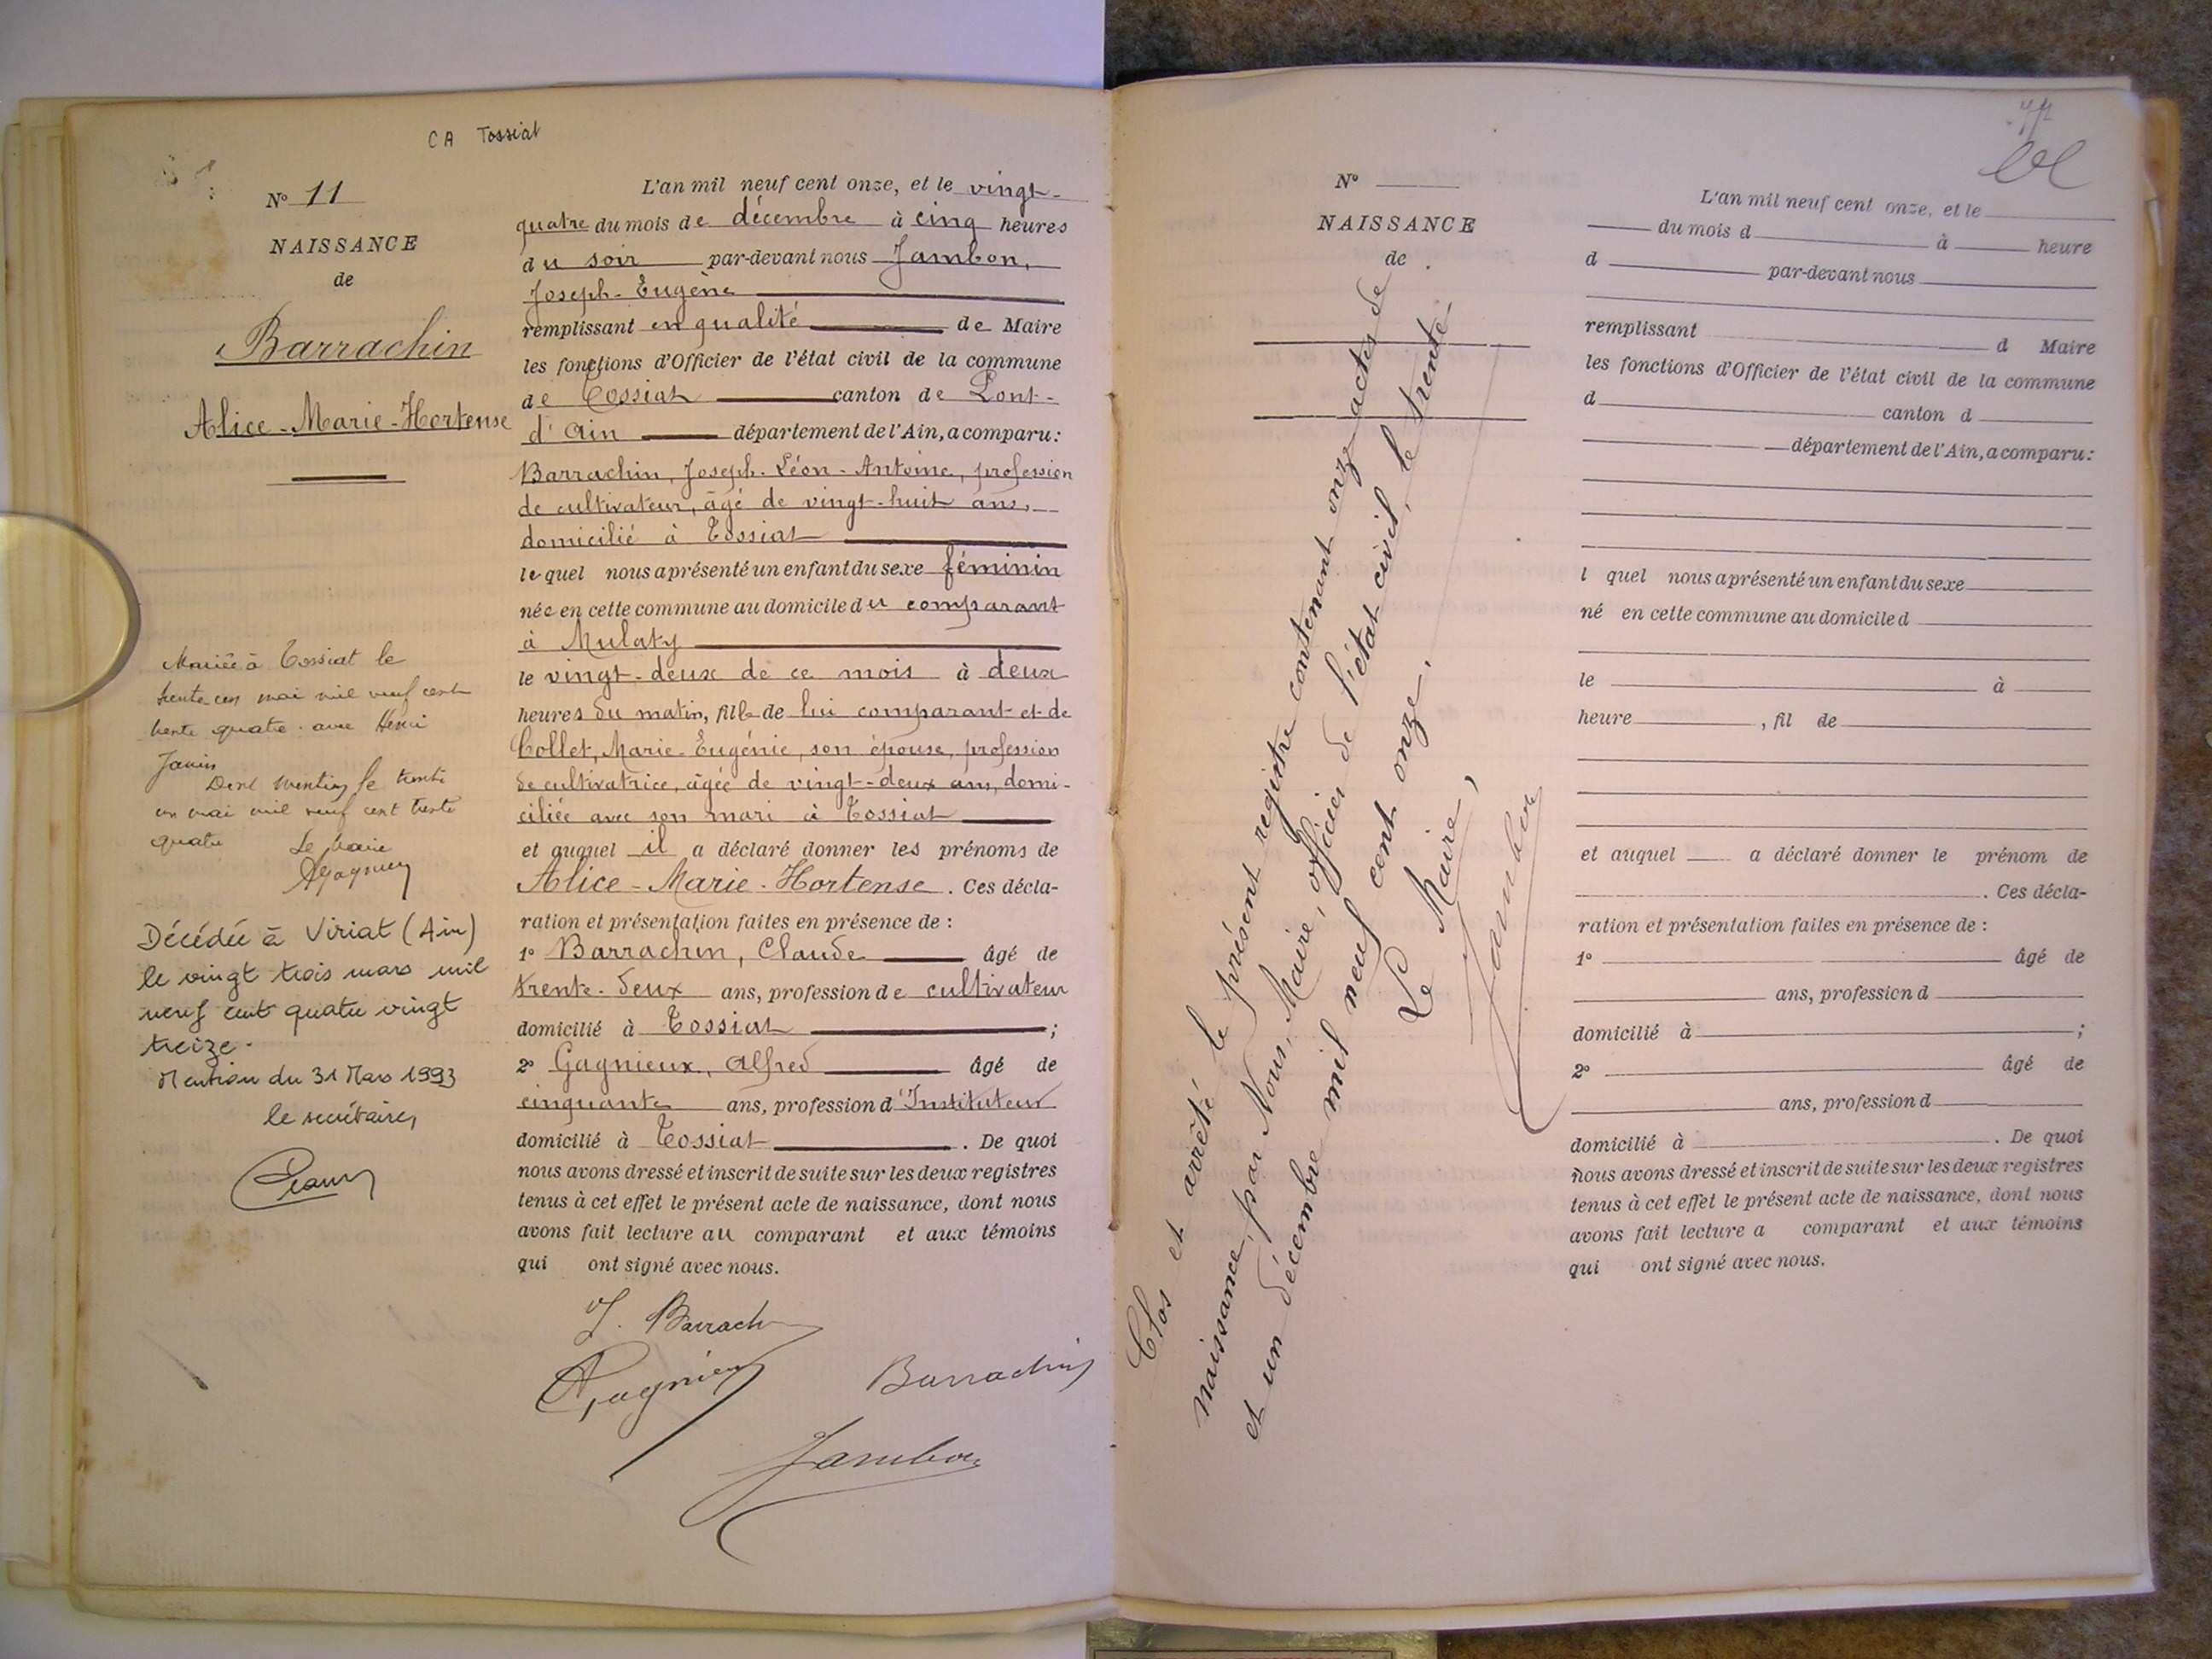 CA Tossiat
N° 11
NAISSANCE
de
Barrachin
Alice-Marie-Hortense
Mariée à Tossiat le
trente un mai mil neuf cent
trente quatre avec Henri
Janin
Dont mention le trente
un mai mil neuf cent trente
quatre Le Maire
AGagnieux
Décédée à Viriat (Ain)
le vingt trois mars mil
neuf cent quatre vingt
treize.
Mention du 31 Mars 1993
le secrétaire,
L'an mil neuf cent onze, et le vingt-
quatre du mois de décembre à cinq heures
du soir par-devant nous Jambon,
Joseph-Eugène
remplissant en qualité de Maire
les fonctions d'Officier de l'état civil de la commune
de Tossiat canton de Pont-
d'Ain département de l'Ain, a comparu:
Barrachin, Joseph-Léon-Antoine, profession
de cultivateur, âgé de vingt-huit ans,
domicilié à Tossiat
lequel nous a présenté un enfant du sexe féminin
née en cette commune au domicile du comparant
à Mulaty
le vingt-deux de ce mois à deux
heures du matin, fille de lui comparant et de
Collet, Marie-Eugénie, son épouse, profession
de cultivatrice, âgée de vingt-deux ans, domi-
ciliée avec son mari à Tossiat
et auquel il a déclaré donner les prénoms de
Alice-Marie-Hortense. Ces décla-
ration et présentation faites en présence de :
1° Barrachin, Claude âgé de
trente-deux ans, profession de cultivateur
domicilié à Tossiat ;
2° Gagnieux, Alfred âgé de
cinquante ans, profession d'Instituteur
domicilié à Tossiat . De quoi
nous avons dressé et inscrit de suite sur les deux registres
tenus à cet effet le présent acte de naissance, dont nous
avons fait lecture au comparant et aux témoins
qui ont signé avec nous.
J. Barrachin
AGagnieux Barrachin
Jambon
N°
NAISSANCE
de
Clos et arrêté le présent registre contenant onze actes de
naissance, par Nous, Maire, officier de l'état civil, le trente
et un décembre mil neuf cent onze.
Le Maire,
Jambon
L'an mil neuf cent onze, et le
du mois d à heure
d par-devant nous
remplissant d Maire
les fonctions d'Officier de l'état civil de la commune
d canton d
département de l'Ain, a comparu:
l quel nous a présenté un enfant du sexe
né en cette commune au domicile d
le à
heure , fil de
et auquel a déclaré donner le prénom de
. Ces décla-
ration et présentation faites en présence de :
1° âgé de
ans, profession d
domicilié à ;
2° âgé de
ans, profession d
domicilié à . De quoi
nous avons dressé et inscrit de suite sur les deux registres
tenus à cet effet le présent acte de naissance, dont nous
avons fait lecture a comparant et aux témoins
qui ont signé avec nous.